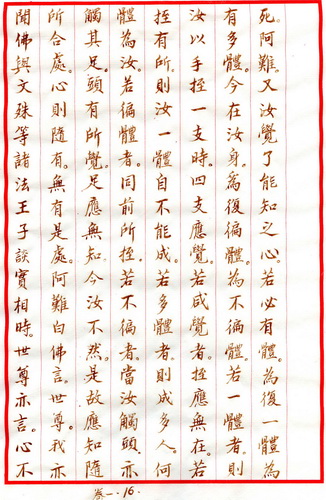 死。阿難。又汝覺了能知之心。若必有體。為復一體為
有多體。今在汝身。為復徧體。為不徧體。若一體者。則
汝以手挃一支時。四支應覺。若咸覺者。挃應無在。若
挃有所。則汝一體自不能成。若多體者。則成多人。何
體為汝。若徧體者。同前所挃。若不徧者。當汝觸頭。亦
觸其足。頭有所覺。足應無知。今汝不然。是故應知。隨
所合處。心則隨有。無有是處。阿難白佛言。世尊。我亦
聞佛與文殊等諸法王子談實相時。世尊亦言。心不
卷一.16.